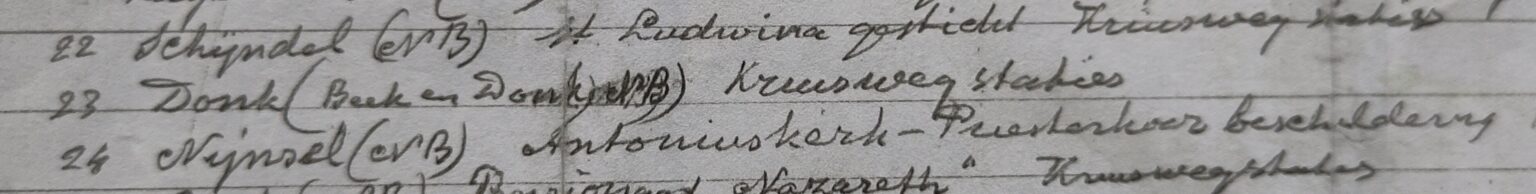 22 Schijndel (NB) st Ludwina gesticht Kruisweg staties
23 Donk (Beek en Donk) (NB) Kruisweg staties
24 Nijnsel (NB) Antoniuskerk - Priesterkoor beschildering
"Nazareth" Kruisweg staties